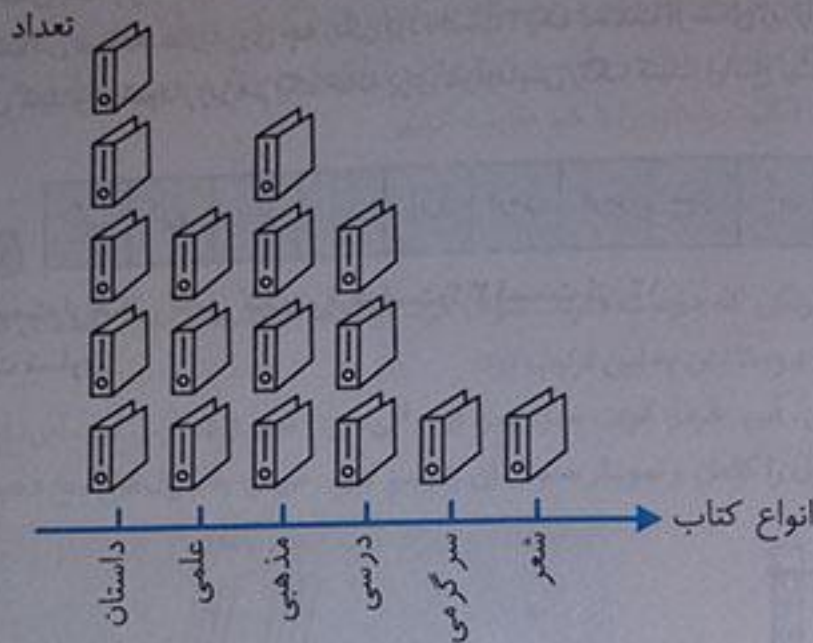 تعداد
انواع کتاب
داستان
علمی
مذهبی
درسی
سرگرمی
شعر